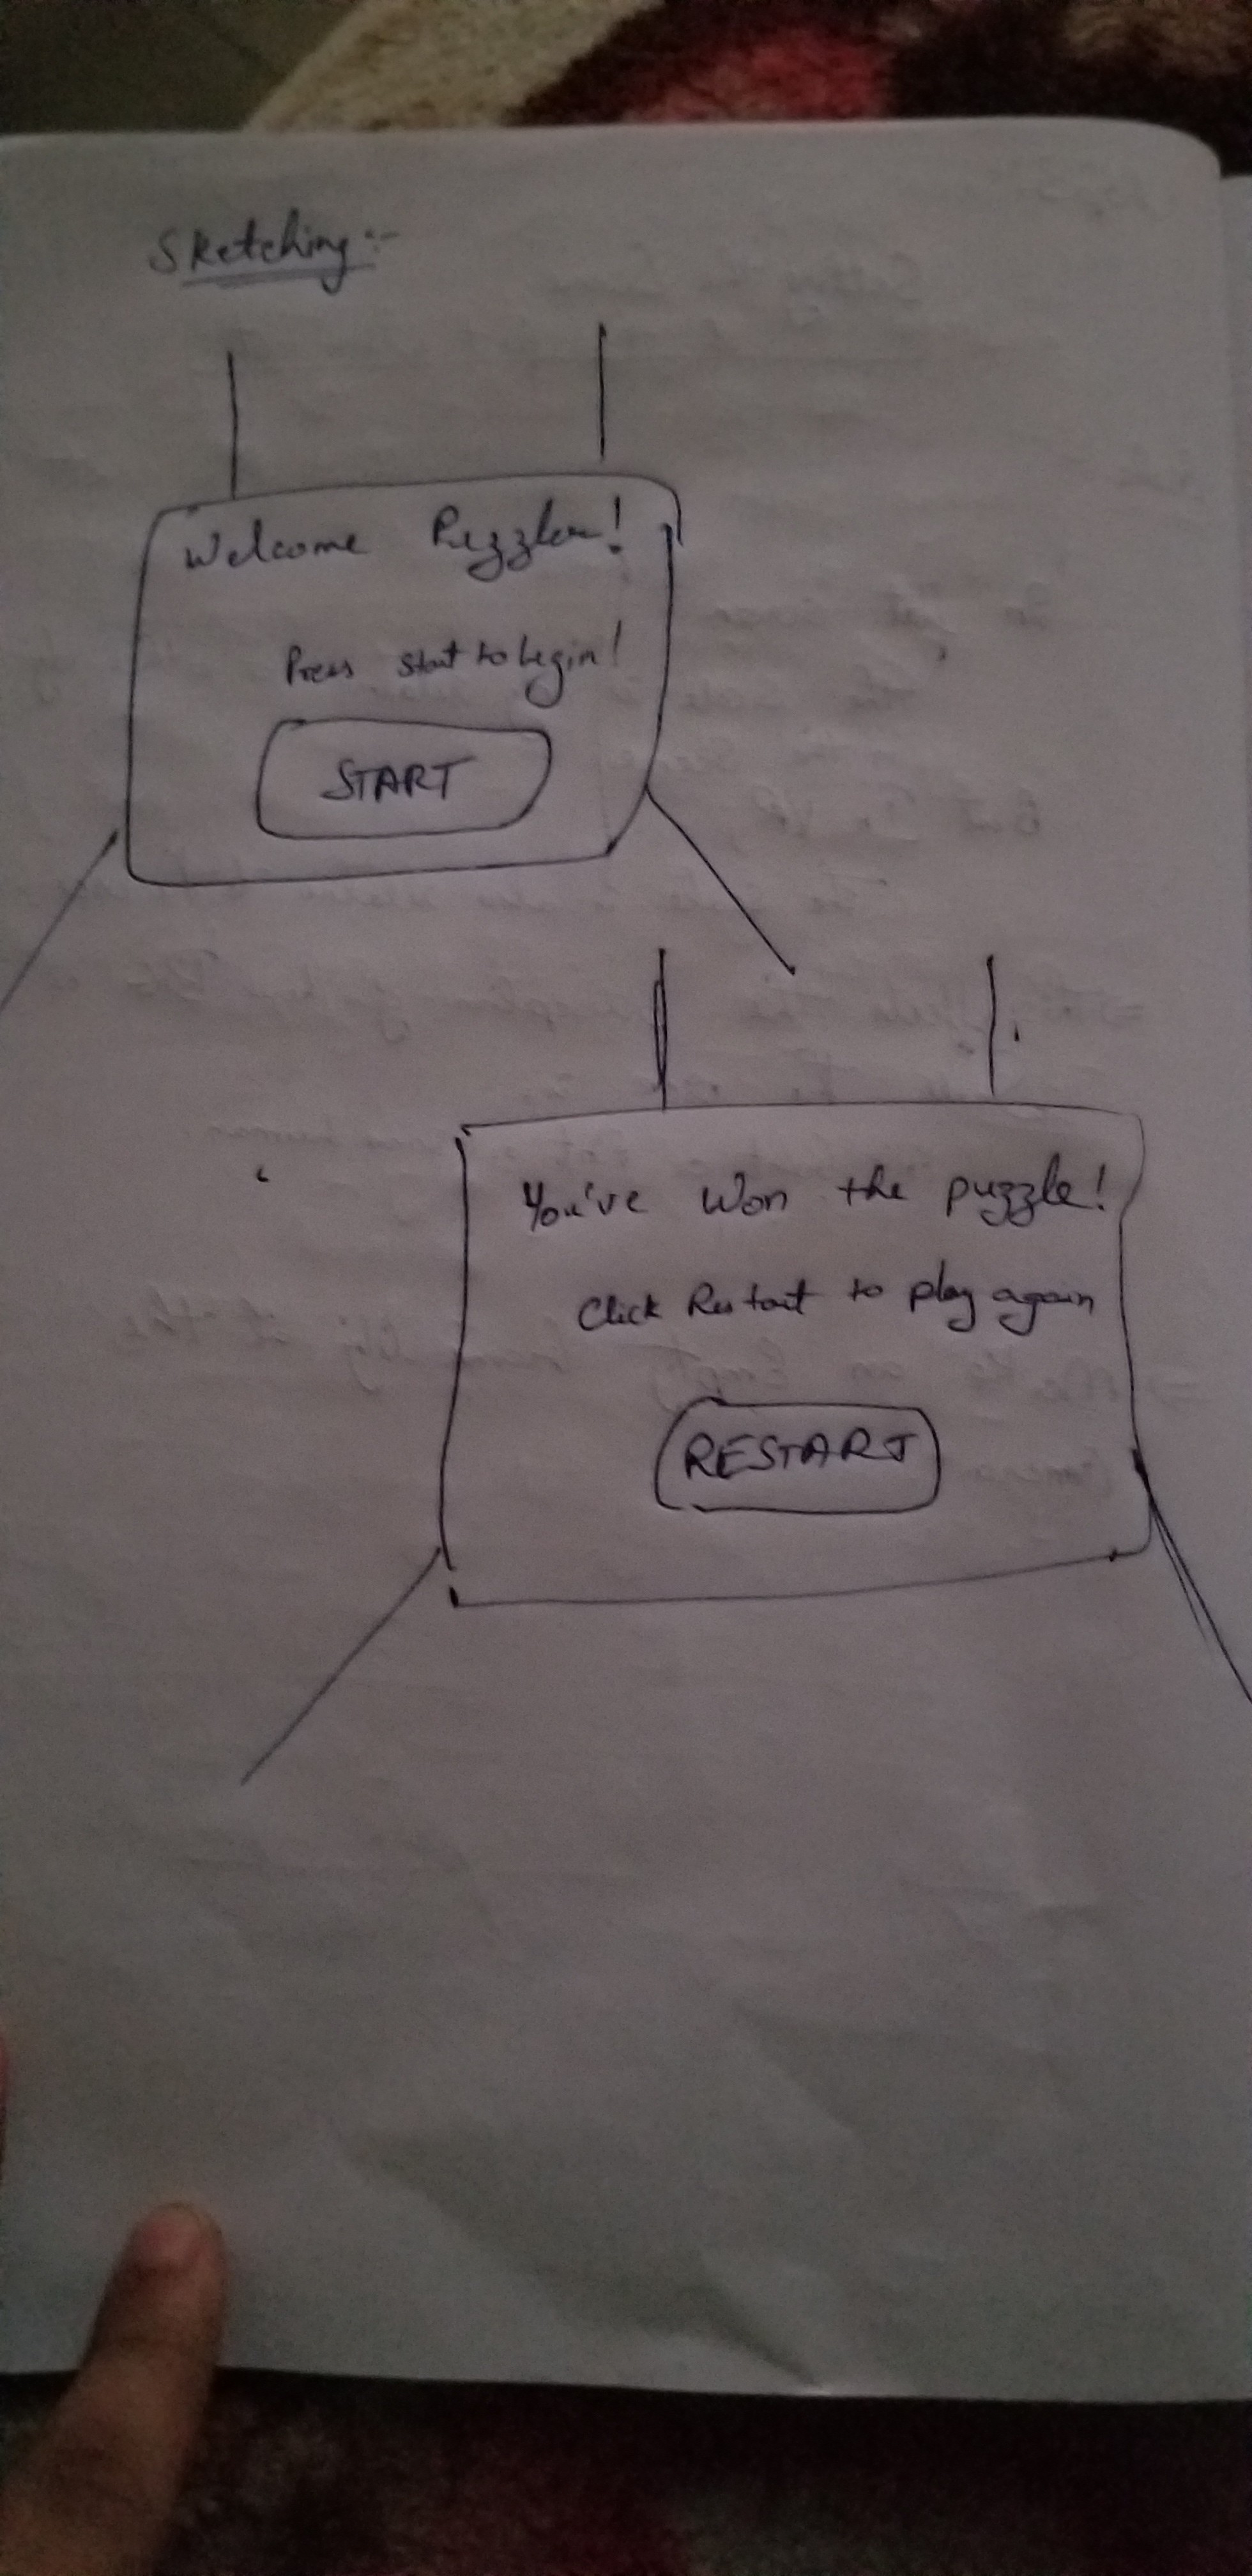 Sketching:-
Welcome Puzzler!
Press start to begin!
START
You've Won the puzzle!
Click Restart to play again
RESTART